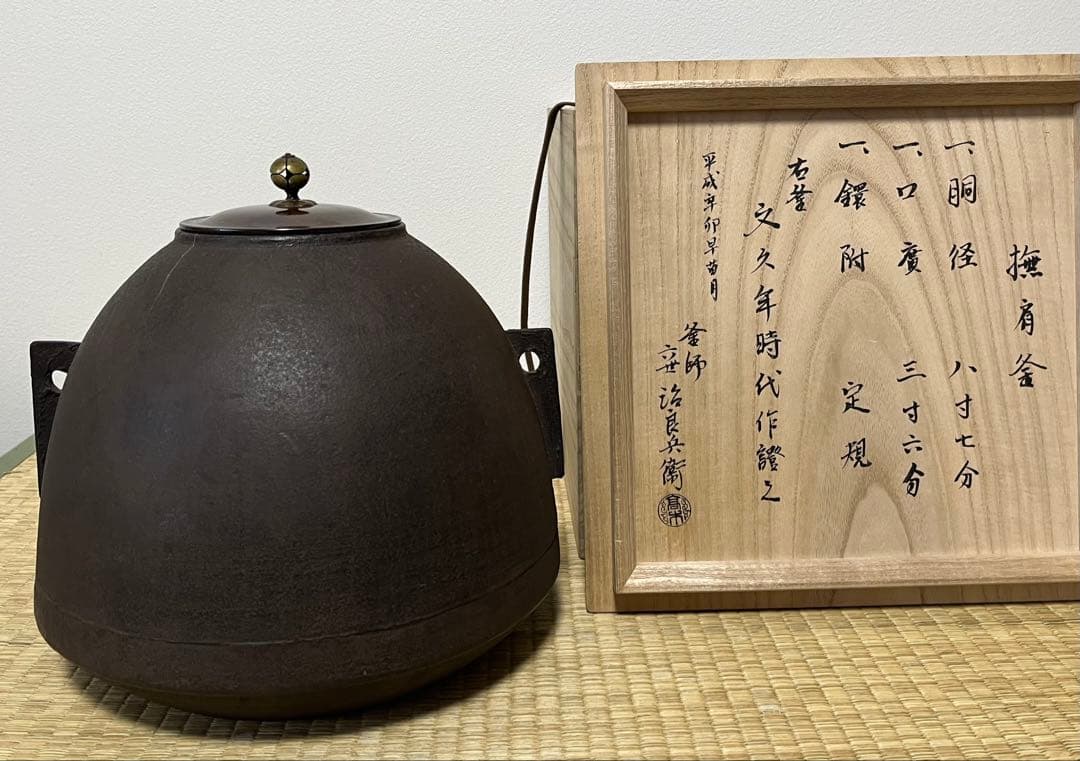 撫肩釜
一、胴径 八寸七分
一、口廣 三寸六分
一、鐶附 定規
右釜
文久年時代作證之
平成辛卯早苗月
釜師
六世 治良兵衛